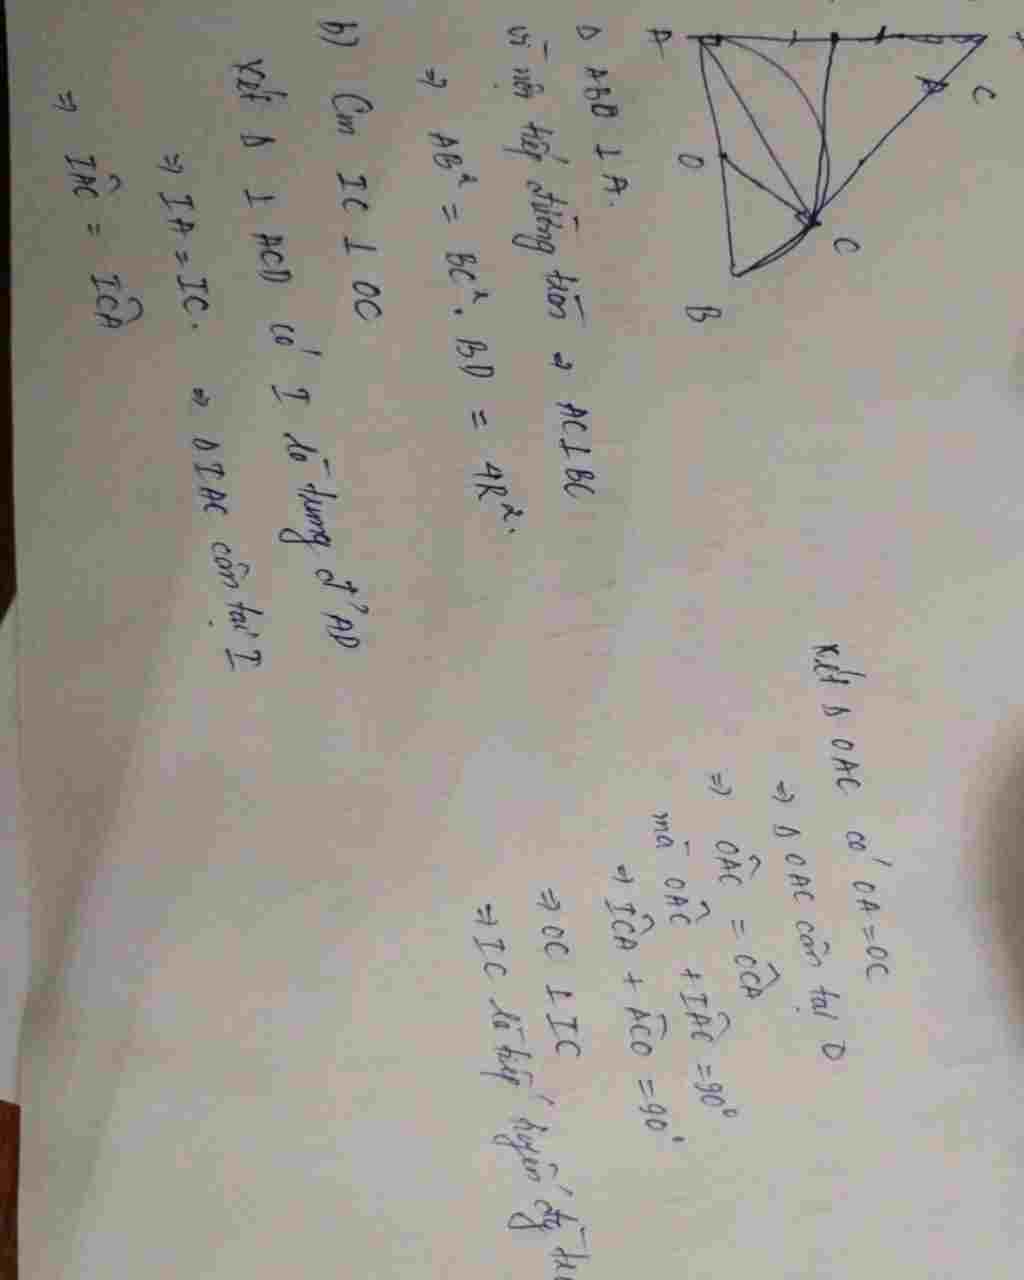 A
C
A
O
C
B
Δ ABD ⊥ A.
vì nội tiếp đường tròn ⇒ AC⊥BC
⇒ AB² = BC². BD = 4R².
b) Cm IC ⊥ OC
Xét Δ ⊥ ACD có I là trung đ' AD
⇒ IA = IC. ⇒ Δ IAC cân tại I
⇒ IÂC = IĈA
Xét Δ OAC có OA = OC
⇒ Δ OAC cân tại O
⇒ OÂC = OĈA
mà OÂC + IÂC = 90°
⇒ IĈA + AĈO = 90°
⇒ OC ⊥ IC
⇒ IC là tiếp tuyến